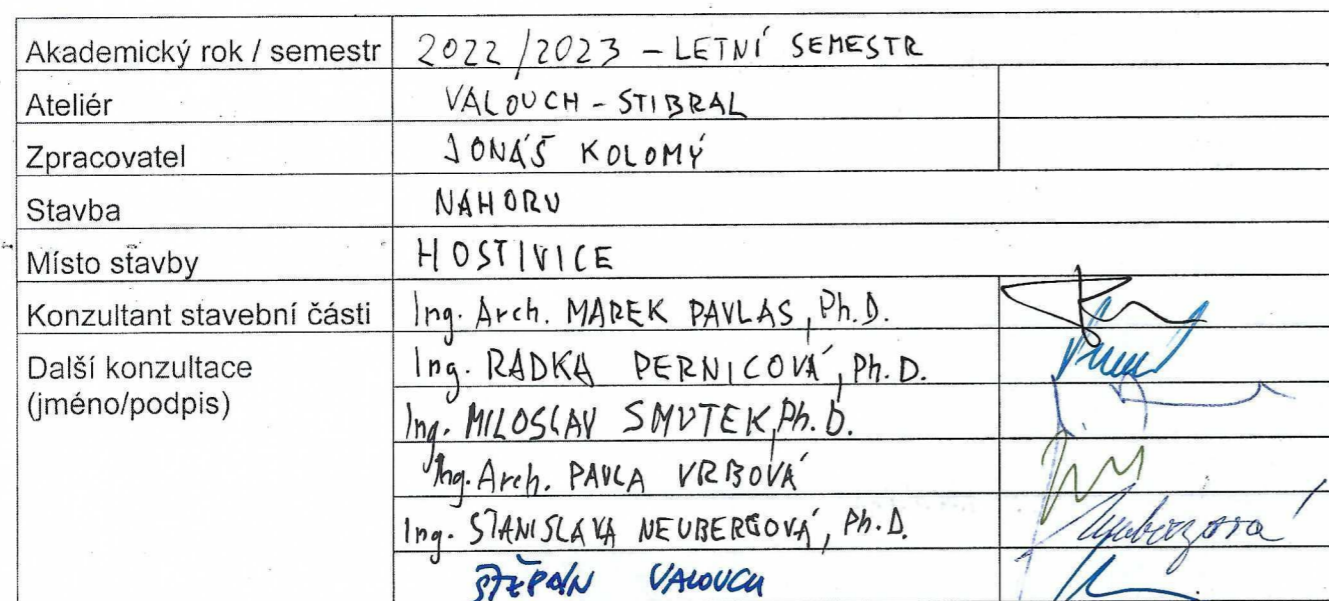 Akademický rok / semestr 2022/2023 - LETNÍ SEMESTR
Ateliér VALOUCH - STIBRAL
Zpracovatel JONÁŠ KOLOMÝ
Stavba NAHORU
Místo stavby HOSTIVICE
Konzultant stavební části Ing. Arch. MAREK PAVLAS, Ph.D.
Další konzultace Ing. RADKA PERNICOVÁ, Ph.D.
(jméno/podpis)
Ing. MILOSLAV SMUTEK, Ph.D.
Ing. Arch. PAVLA VRBOVÁ
Ing. STANISLAVA NEUBERGOVÁ, Ph.D. Neubergová
ŠTĚPÁN VALOUCH